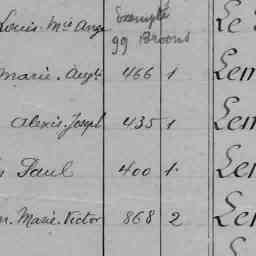 Louis. Mie Ange Exempté Le
99 Broons
Marie. Augte 466 1 Lem
Alexis. Joseph 435 1 Lem
Paul 400 1. Len
Marie. Victor 868 2 Len